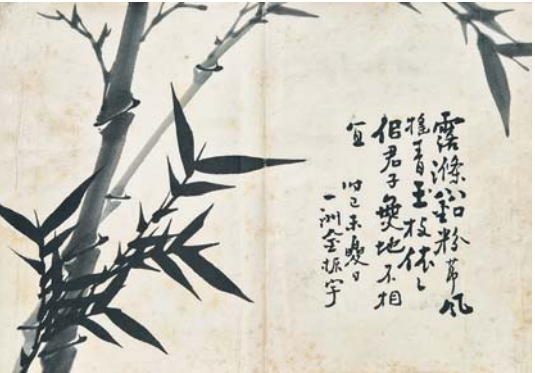 露滌鉛粉莭風
搖青玉枝依〻
佀君子無地不相
宜
时己未夏日
一洲金振宇